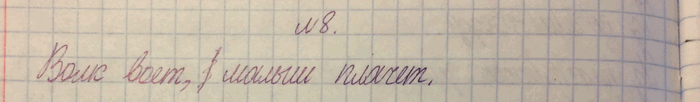 №8.
Волк воет, малыш плачет.